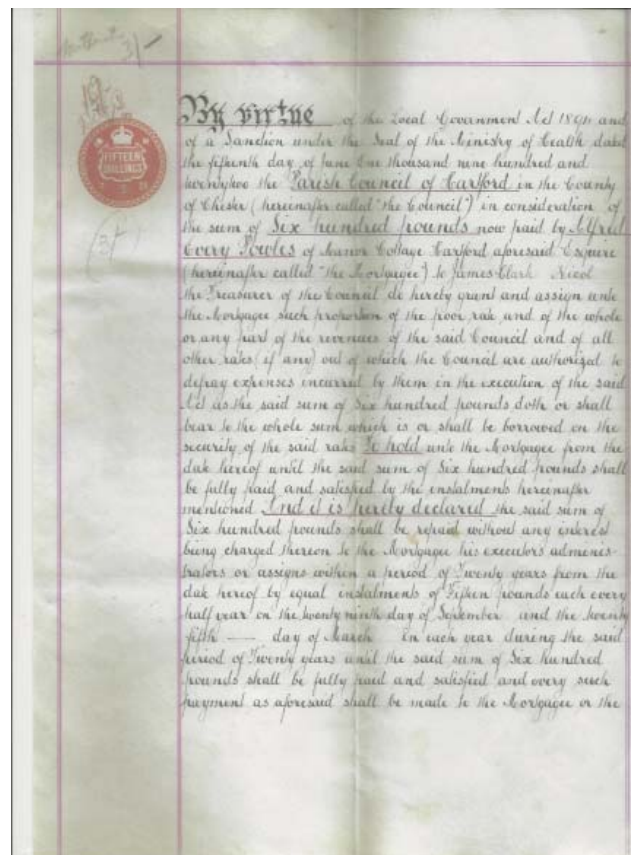 3/-
FIFTEEN
SHILLINGS
By virtue of the Local Government Act 1894 and
of a Sanction under the Seal of the Ministry of Health dated
the fifteenth day of June One thousand nine hundred and
twentytwo the Parish Council of Hartford in the County
of Chester (hereinafter called "the Council") in consideration of
the sum of Six hundred pounds now paid by Alfred
Every Powles of Manor Cottage Hartford aforesaid Esquire
(hereinafter called "the Mortgagee") to James Clark Nicol
the Treasurer of the Council do hereby grant and assign unto
the Mortgagee such proportion of the poor rate and of the whole
or any part of the revenues of the said Council and of all
other rates (if any) out of which the Council are authorized to
defray expenses incurred by them in the execution of the said
Act as the said sum of Six hundred pounds doth or shall
bear to the whole sum which is or shall be borrowed on the
security of the said rates To hold unto the Mortgagee from the
date hereof until the said sum of Six hundred pounds shall
be fully paid and satisfied by the instalments hereinafter
mentioned And it is hereby declared the said sum of
Six hundred pounds shall be repaid without any interest
being charged thereon to the Mortgagee his executors adminis-
trators or assigns within a period of Twenty years from the
date hereof by equal instalments of Fifteen pounds each every
half year on the twenty ninth day of September and the twenty
fifth — day of March in each year during the said
period of Twenty years until the said sum of Six hundred
pounds shall be fully paid and satisfied and every such
payment as aforesaid shall be made to the Mortgagee or the